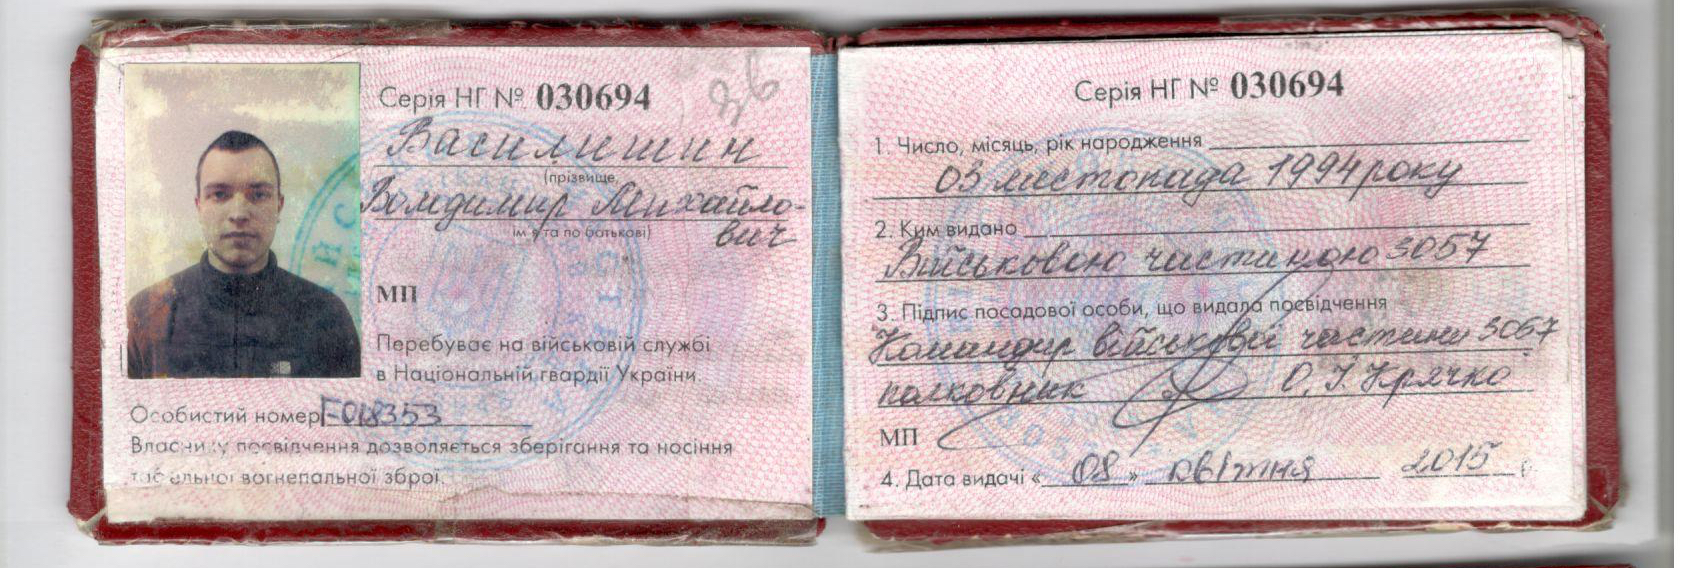 Серія НГ № 030694
36
Василишин
(прізвище,
Володимир Михайло-
вич
ім'я та по батькові)
МП
Перебуває на військовій службі
в Національній гвардії України.
Особистий номер Г-018353
Власнику посвідчення дозволяється зберігання та носіння
табельної вогнепальної зброї.
Серія НГ № 030694
1. Число, місяць, рік народження
03 листопада 1994 року
2. Ким видано
Військовою частиною 3057
3. Підпис посадової особи, що видала посвідчення
Командир військової частини 3057
полковник О. І. Крячко
МП
4. Дата видачі « 08 » квітня 2015 р.